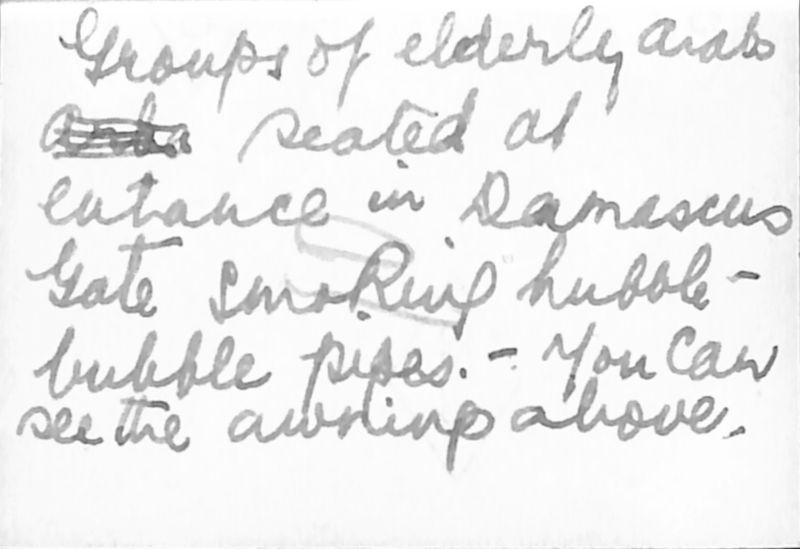 Groups of elderly arabs
seated at
entance in Damascus
Gate smoking hubble-
bubble pipes. - You can
see the awning above.